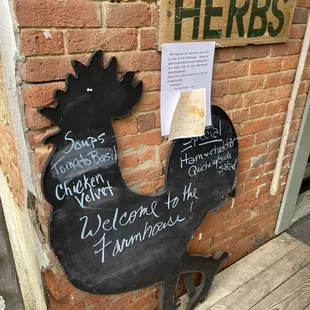 HERBS
Soups
Tomato Basil
Chicken
Velvet
Special
Ham & Cheddar
Quiche w/ side
salad
Welcome to the
Farmhouse!